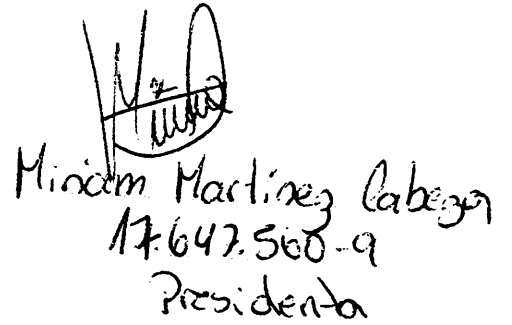 Miriam Martinez Cabezas
17.647.560-9
Presidenta